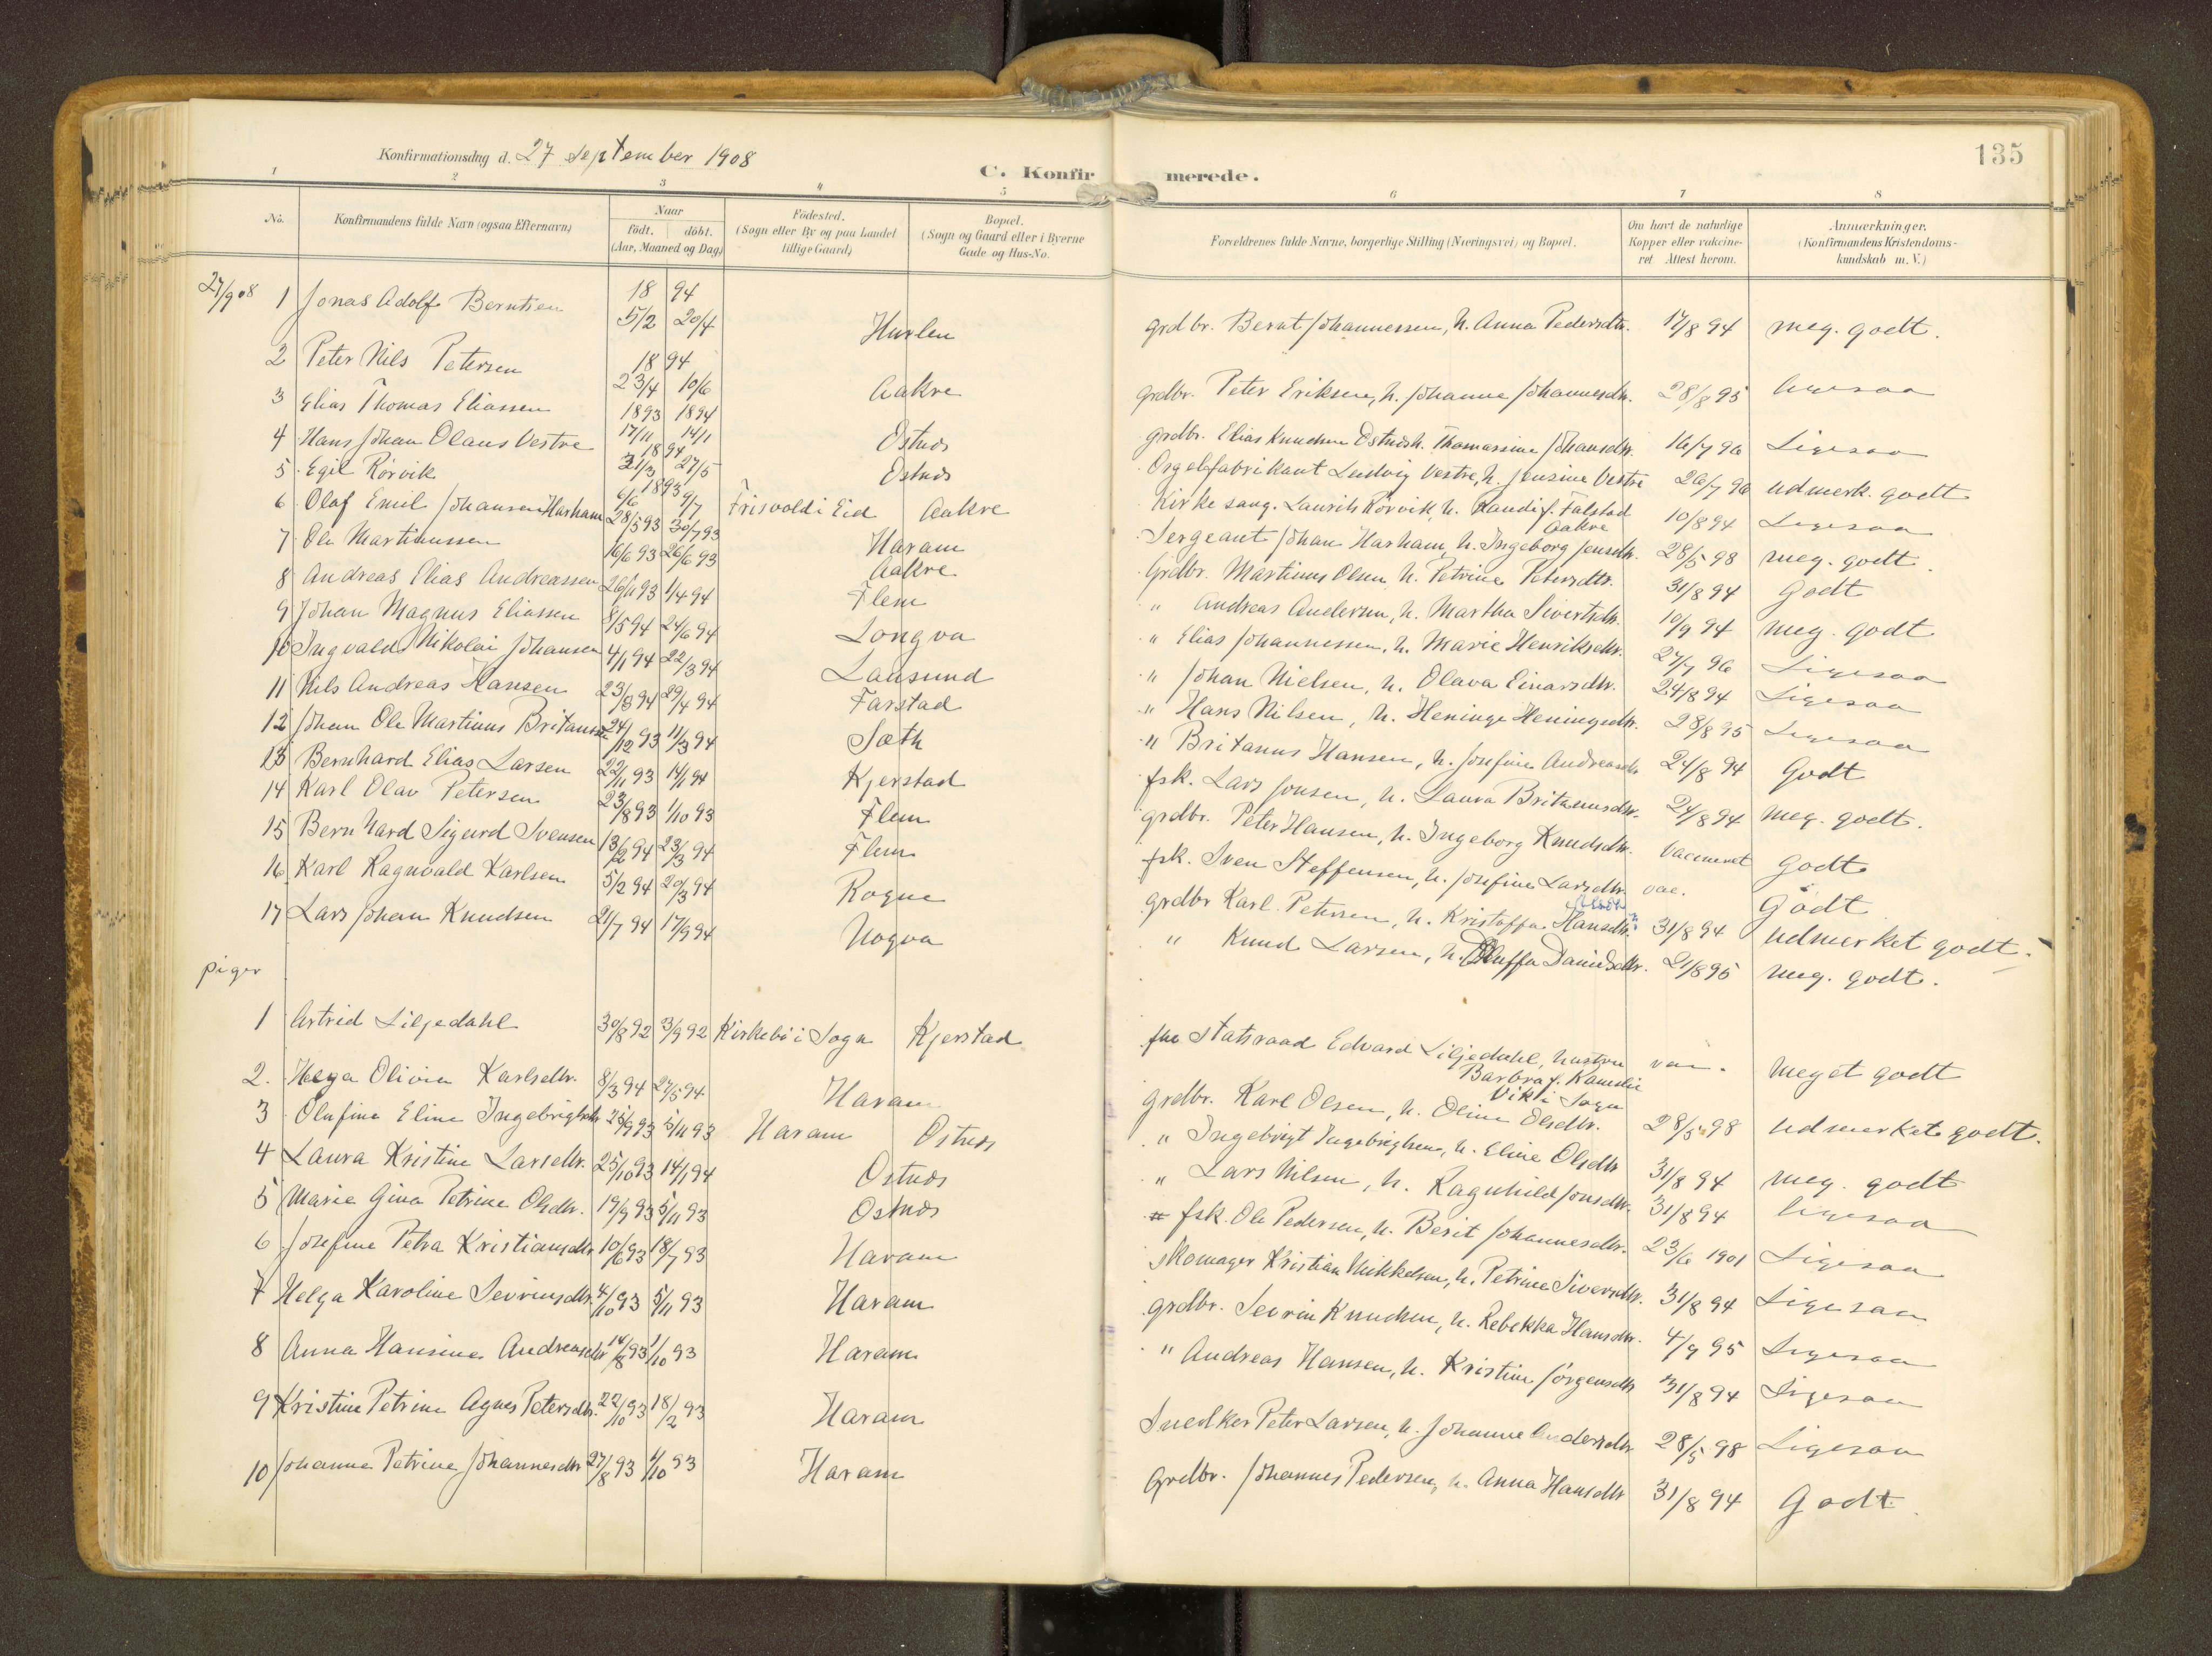 135
Konfirmationsdag d. 27 september 1908
C. Konfirmerede.
1 2 3 4 5 6 7 8
No. Konfirmandens fulde Navn (ogsaa Efternavn) Naar födt. döbt. (Aar, Maaned og Dag) Födested. (Sogn eller By og paa Landet tillige Gaard) Bopæl. (Sogn og Gaard eller i Byerne Gade og Hus-No. Forældrenes fulde Navne, borgerlige Stilling (Næringsvei) og Bopæl. Om havt de naturlige Kopper eller vakcineret Attest herom. Anmærkninger. (Konfirmandens Kristendomskundskab m. V.)
27/9 08 1 Jonas Adolf Berntsen 1894 5/2 20/4 Hurlen grdbr. Bernt Johannessen, h. Anna Pedersdtr. 17/8 94 meg. godt.
2 Peter Nils Petersen 1894 23/4 10/6 Aakre grdbr. Peter Eriksen, h. Johanne Johannesdtr. 28/8 95 ligesaa
3 Elias Thomas Eliassen 1893 17/11 1894 14/1 Østnes grdbr. Elias Knudsen Østnes h. Thomassine Johansdtr. 16/7 96 Ligesaa
4 Hans Johan Olaus Vestre 1894 31/3 27/5 Østnes Orgelfabrikant Ludvig Vestre, h. Jensine Vestre 26/7 96 udmerk. godt
5 Egil Rörvik 1893 6/6 9/7 Frisvold i Eid Aakre Kirkesang. Laurits Rörvik h. Randi f. Falstad Aakre 10/8 94 Ligesaa
6 Olaf Emil Johansen Harham 28/5 93 30/7 93 Haram Sergeant Johan Harham, h. Ingeborg Jensdtr. 28/5 98 meg. godt.
7 Ole Martinussen 16/6 93 26/6 93 Aakre Grdbr. Martinus Olsen h. Petrine Petersdtr. 31/8 94 Godt
8 Andreas Elias Andreassen 26/11 93 1/4 94 Flem " Andreas Andersen, h. Martha Sivertsdtr. 10/9 94 meg. godt
9 Johan Magnus Eliassen 8/5 94 24/6 94 Longva " Elias Johannessen, h. Marie Henriksdtr. 27/7 96 Ligesaa
10 Ingvald Nikolai Johansen 4/1 94 22/3 94 Lausund " Johan Nielsen, h. Olava Einarsdtr. 24/8 94 Ligesaa
11 Nils Andreas Hansen 23/3 94 29/4 94 Farstad " Hans Nilsen, h. Heninge Heningsdtr. 28/8 95 Ligesaa
12 Johan Ole Martinus Britanussen 24/12 93 11/3 94 Sæth " Britanus Hansen, h. Josefine Andreasdtr 24/8 94 Godt
13 Bernhard Elias Larsen 22/11 93 14/1 94 Kjerstad fsk. Lars Jonsen, h. Laura Britanusdtr. 24/8 94 meg. godt.
14 Karl Olav Petersen 23/8 93 1/10 93 Flem grdbr. Peter Hansen, h. Ingeborg Knudsdtr. Vaccineret Godt
15 Bernhard Sigurd Svensen 13/2 94 23/3 94 Flem fsk. Sven Steffensen, h. Josefine Larsdtr. vac. Godt
16 Karl Ragnvald Karlsen 5/2 94 20/3 94 Rogne grdbr Karl Petersen, h. Kristoffa Hansdtr. 31/8 94 Udmerket godt.
17 Lars Johan Knudsen 21/7 94 17/9 94 Uogva " Knud Larsen, h. Danielsdtr. 21/8 95 meg. godt.
piger
1 Astrid Liljedahl 30/8 92 3/9 92 Kirkebö i Sogn Kjerstad fhv Statsraad Edvard Liljedahl, hustru Barbra f. Kamilie Vik i Sogn vac. Meget godt
2. Helga Olivia Karlsdtr. 8/3 94 27/5 94 Haram grdbr. Karl Olsen, h. Oline Olsdtr. 28/5 98 Udmerket godt.
3 Olufine Eline Ingebrigtsdtr 25/9 93 5/11 93 Haram Østnes " Ingebrigt Ingebrigtsen, h. Eline Olsdtr 31/8 94 meg. godt
4 Laura Kristine Larsdtr. 25/10 93 14/1 94 Østnes " Lars Nilsen, h. Ragnhild Jonsdtr. 31/8 94 ligesaa
5 Marie Gina Petrine Olsdtr. 19/9 93 5/11 93 Østnes fsk. Ole Pedersen, h. Berit Johannesdtr. 23/6 1901 Ligesaa
6 Josefine Petra Kristiansdtr 10/6 93 18/7 93 Haram Skomager Kristian Mikkelsen, h. Petrine Siversdtr. 31/8 94 Ligesaa
7 Helga Karoline Sevrinsdtr. 4/10 93 5/11 93 Haram grdbr. Sevrin Knudsen, h. Rebekka Hansdtr. 4/9 95 Ligesaa
8 Anna Hansine Andreasdtr 14/8 93 1/10 93 Haram " Andreas Hansen, h. Kristine Jörgensdtr 31/8 94 Ligesaa
9 Kristine Petrine Agnes Petersdtr. 22/10 93 18/2 93 Haram Snedker Peter Larsen, h. Johanne Andersdtr 28/5 98 Ligesaa
10 Johanna Petrine Johannesdtr 27/8 93 1/10 93 Haram Grdbr. Johannes Pedersen, h. Anna Hansdtr 31/8 94 Godt.